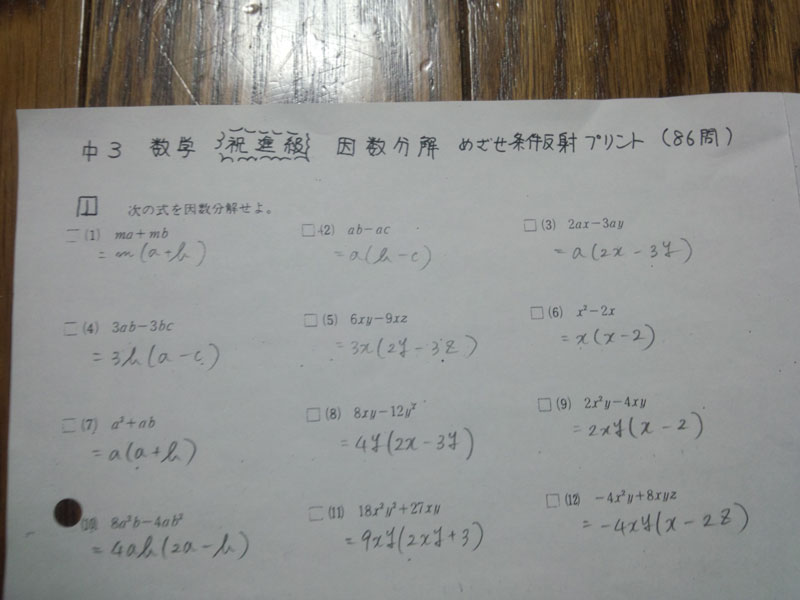 中3 数学 祝進級 因数分解 めざせ条件反射プリント(86問)
1 次の式を因数分解せよ。
(1) ma+mb
= m(a+b)
(2) ab-ac
= a(b-c)
(3) 2ax-3ay
= a(2x-3y)
(4) 3ab-3bc
= 3b(a-c)
(5) 6xy-9xz
= 3x(2y-3z)
(6) x²-2x
= x(x-2)
(7) a²+ab
= a(a+b)
(8) 8xy-12y²
= 4y(2x-3y)
(9) 2x²y-4xy
= 2xy(x-2)
(10) 8a²b-4ab²
= 4ab(2a-b)
(11) 18x²y²+27xy
= 9xy(2xy+3)
(12) -4x²y+8xyz
= -4xy(x-2z)